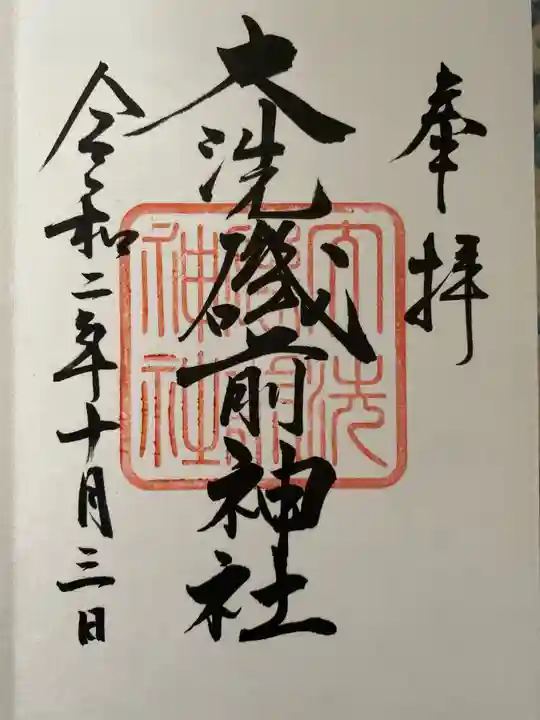 奉拝
大洗磯前神社
大洗磯前神社
令和二年十月三日